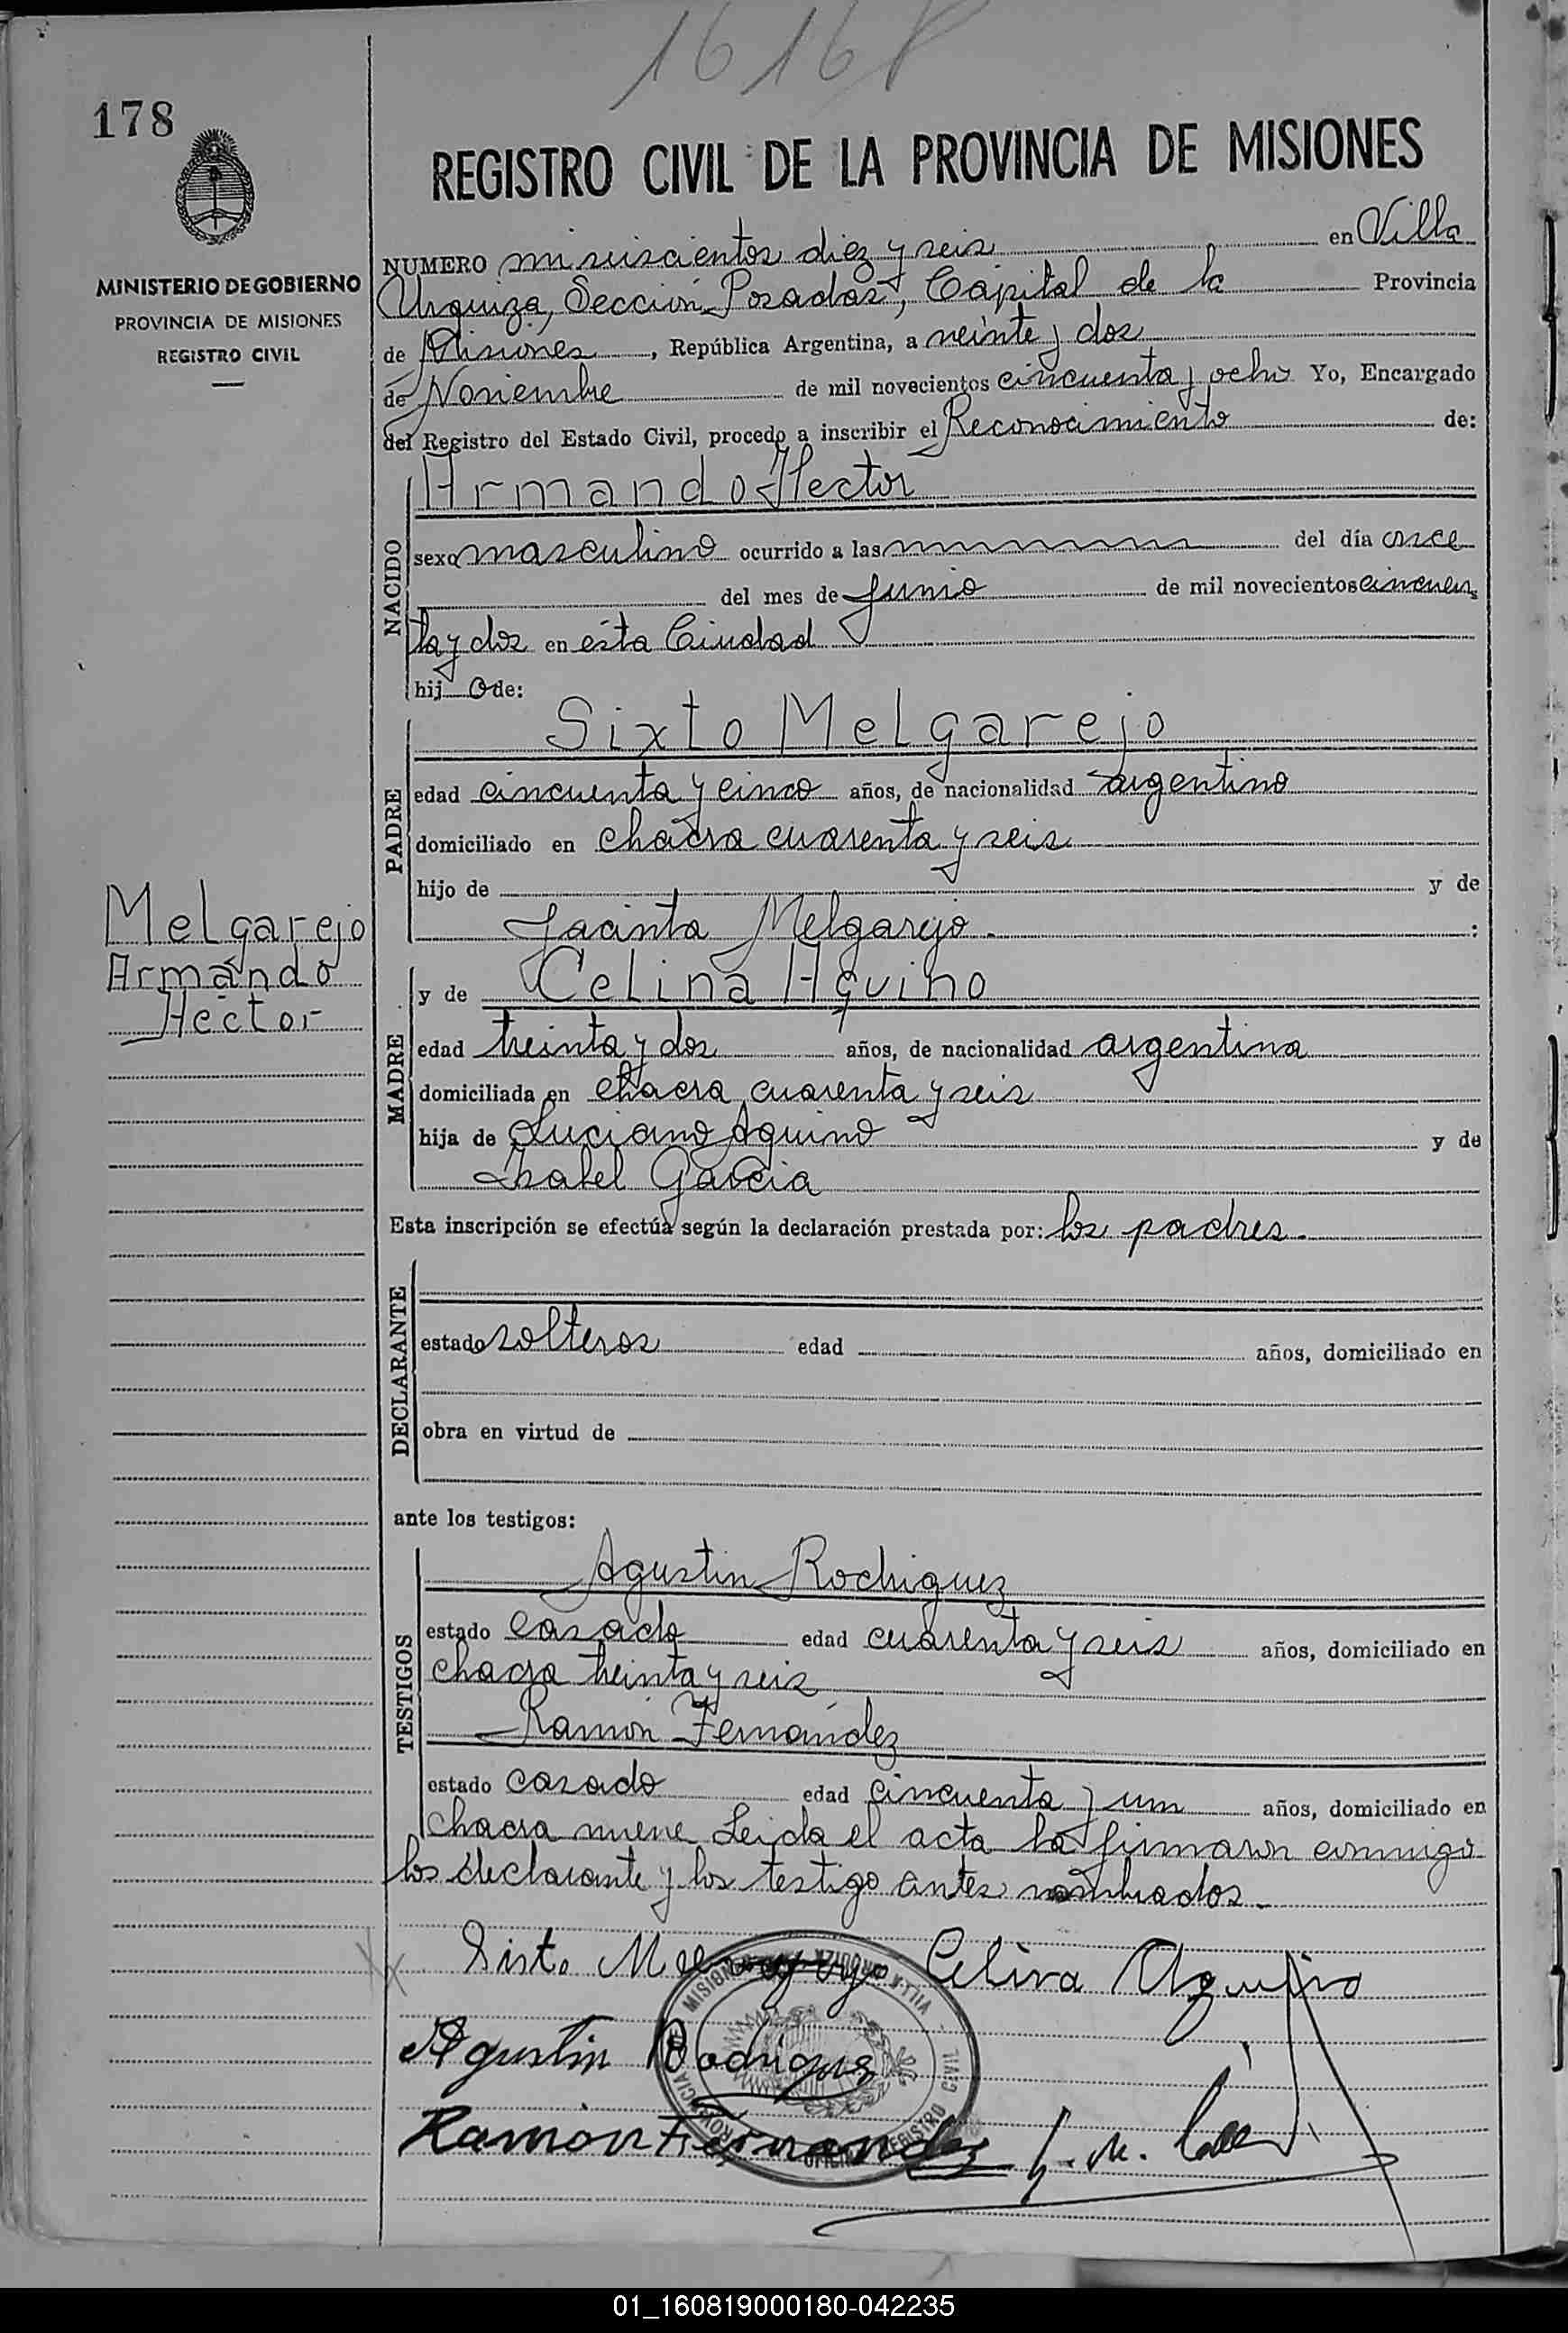 1616
178
REGISTRO CIVIL DE LA PROVINCIA DE MISIONES
MINISTERIO DE GOBIERNO
PROVINCIA DE MISIONES
REGISTRO CIVIL
NUMERO mi seiscientos diez y seis en Villa
Urquiza, Sección Posadas, Capital de la Provincia
de Misiones, República Argentina, a veinte y dos
de Noviembre de mil novecientos cincuenta y ocho Yo, Encargado
del Registro del Estado Civil, procedo a inscribir el Reconocimiento de:
NACIDO
Armando Hector
sexo masculino ocurrido a las del día once
del mes de Junio de mil novecientos cincuen
ta y dos en ésta Ciudad
hij o de:
PADRE
Sixto Melgarejo
edad cincuenta y cinco años, de nacionalidad argentino
domiciliado en chacra cuarenta y seis
hijo de y de
Jacinta Melgarejo. :
Melgarejo
Armando
Hector
MADRE
y de Celina Aquino
edad treinta y dos años, de nacionalidad argentina
domiciliada en chacra cuarenta y seis
hija de Luciano Aquino y de
Isabel Garcia
Esta inscripción se efectúa según la declaración prestada por: los padres.
DECLARANTE
estado solteros edad años, domiciliado en
obra en virtud de
ante los testigos:
TESTIGOS
Agustin Rodriguez
estado casado edad cuarenta y seis años, domiciliado en
chacra treinta y seis
Ramón Fernández
estado casado edad cincuenta y un años, domiciliado en
chacra nueve Leida el acta la firmaron conmigo
los declarante y los testigo antes nombrados.
Sisto Melgarejo Celina Aquino
Agustin Rodriguez
Ramón Fernandez
01_160819000180-042235